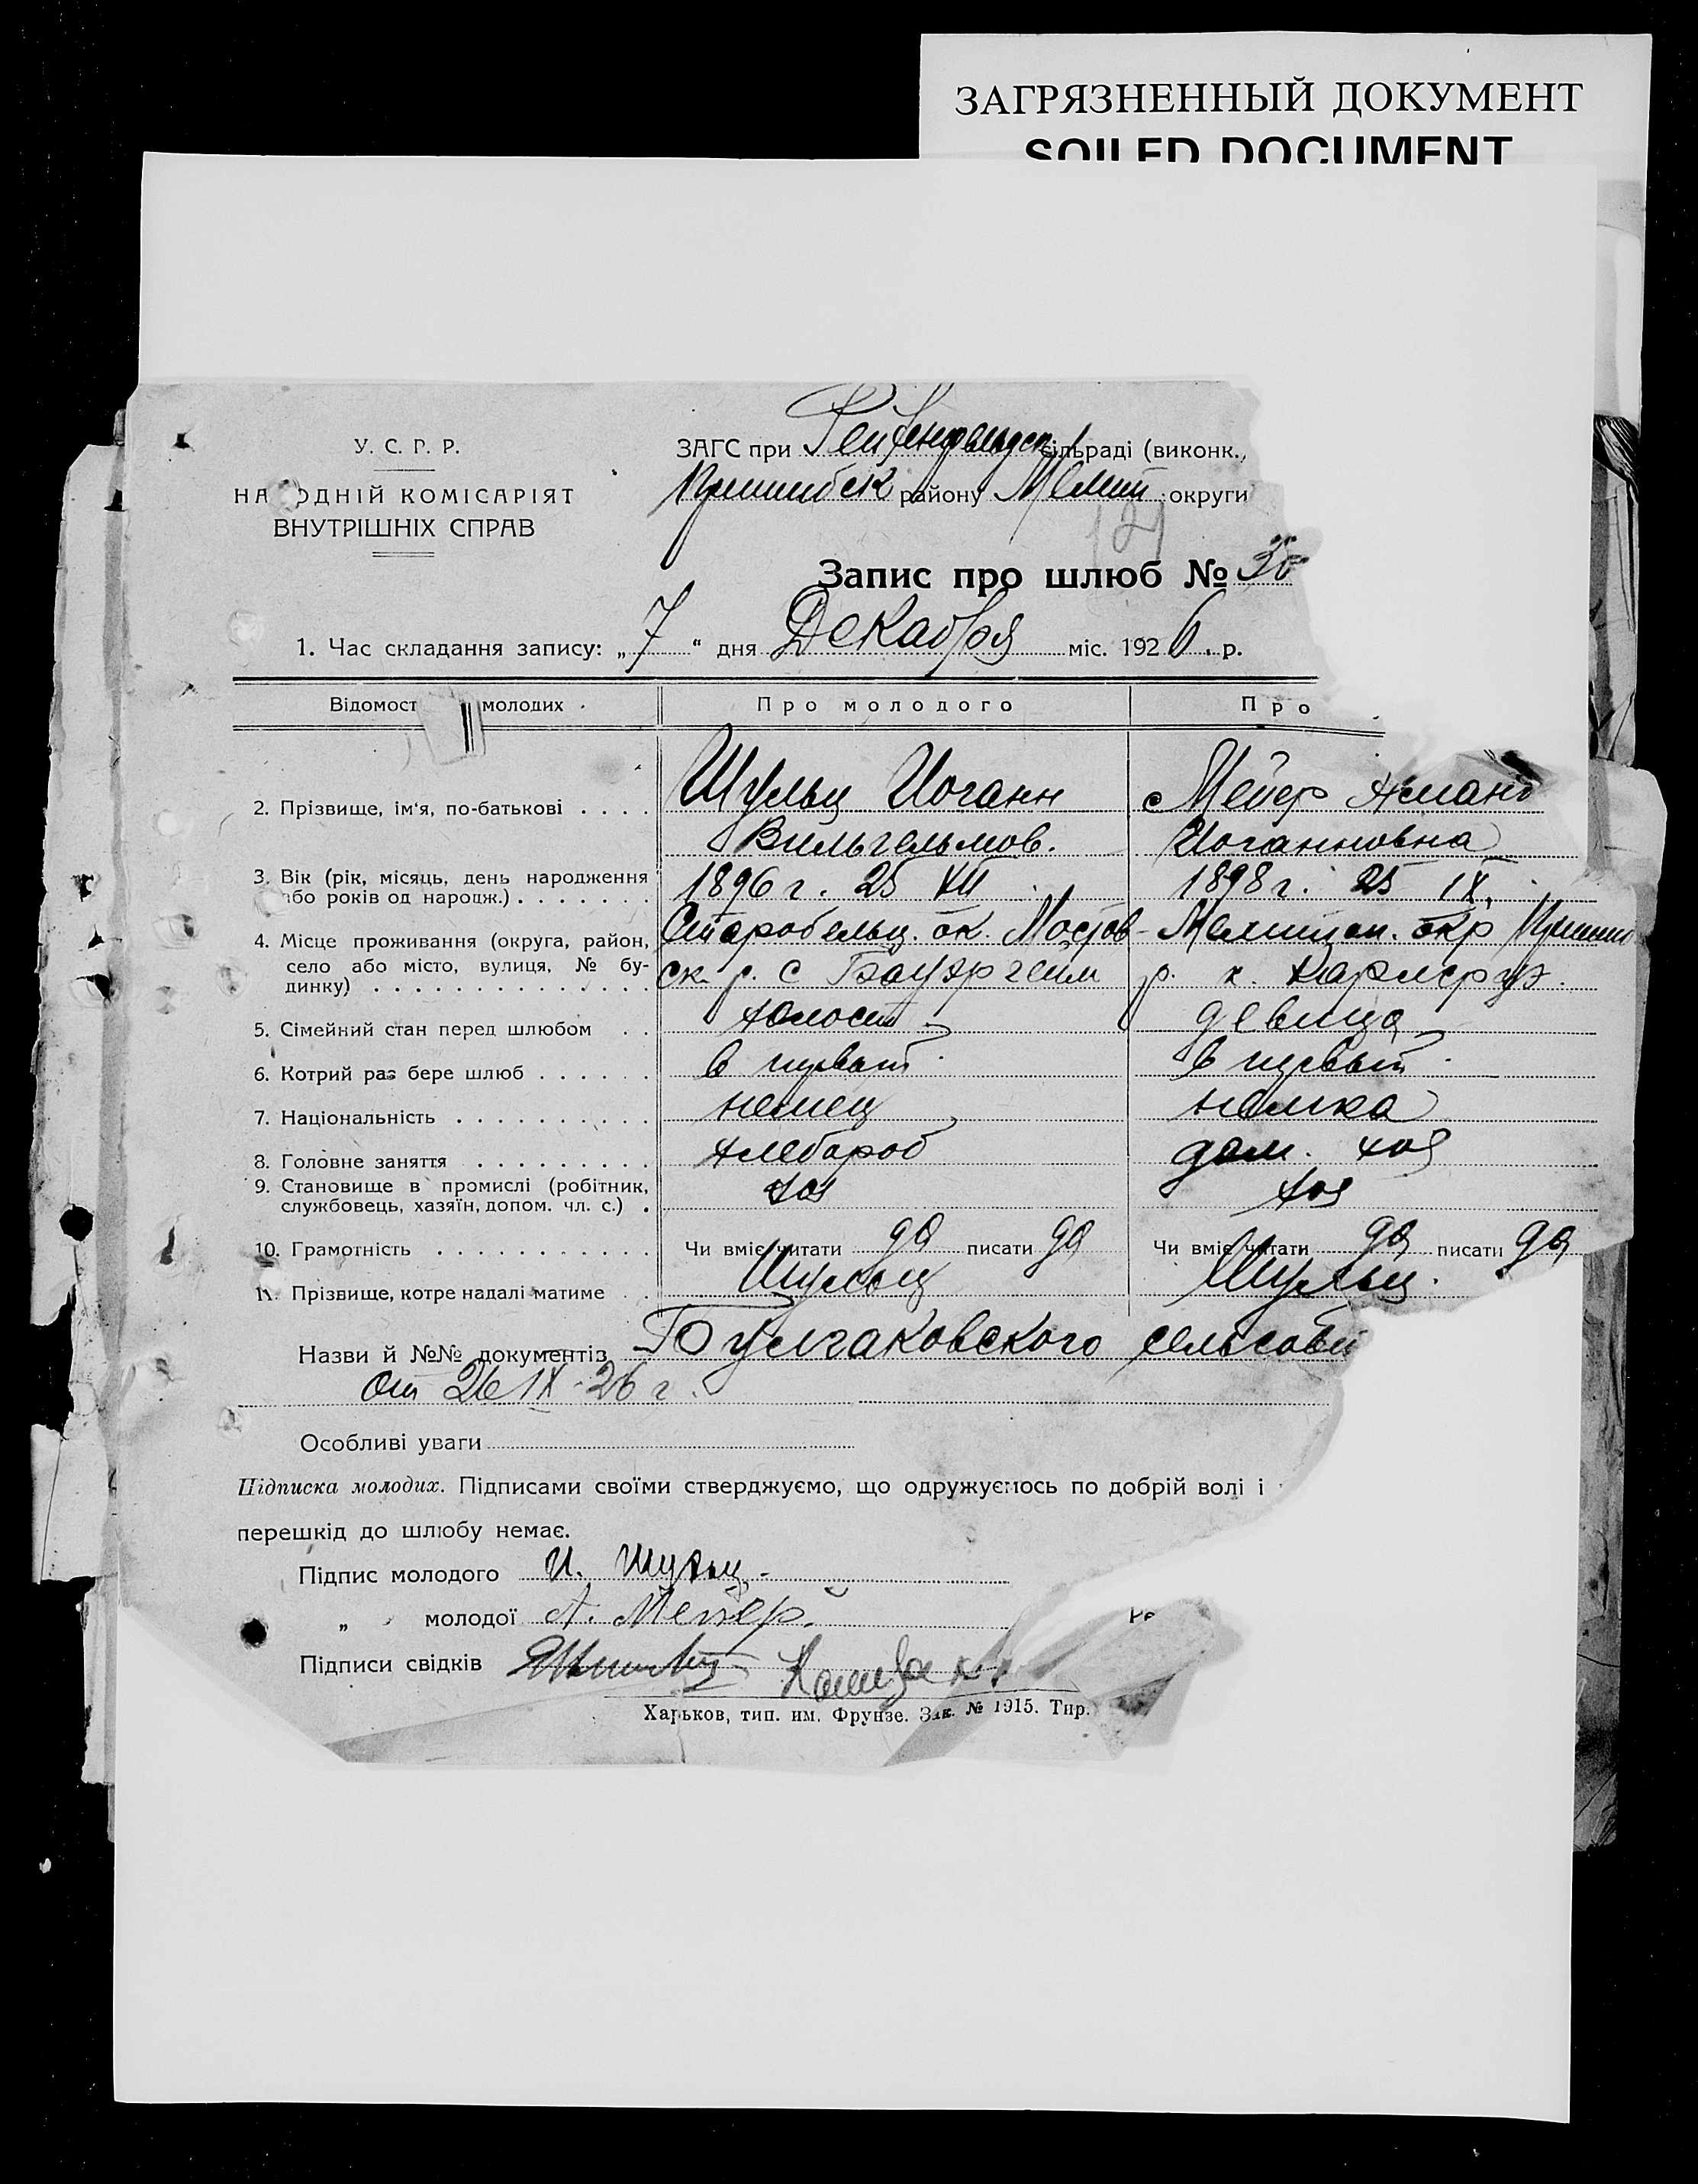 ЗАГРЯЗНЕННЫЙ ДОКУМЕНТ
SOILED DOCUMENT
У. С. Р. Р.
НА ОДНІЙ КОМІСАРІЯТ
ВНУТРІШНІХ СПРАВ
ЗАГС при сільраді (виконк.,
району Мелит. округи
Запис про шлюб №
1. Час складання запису: „7“ дня Декабря міс. 1926. р.
Відомост молодих Про молодого Про
2. Прізвище, ім'я, по-батькові . . . . Шульц Иоганн Мейер
Вильгельмов. Иоганновна
3. Вік (рік, місяць, день народження 1896 г. 25 XII 1898 г. 25 IX.
або років од народж.) . . . . . . .
4. Місце проживання (округа, район, Старобельц. ок. Мостов-
село або місто, вулиця, № бу- ск. р. с Бауэргейм р. х. Карлсруэ.
динку) . . . . . . . . . . . . . .
5. Сімейний стан перед шлюбом . . холост девица
6. Котрий раз бере шлюб . . . . . . в первый в первый
7. Національність . . . . . . . . . . немец немка
8. Головне заняття . . . . . . . . . хлебороб дом. хоз
9. Становище в промислі (робітник, хоз хоз
службовець, хазяїн, допом. чл. с.) .
10. Грамотність . . . . . . . . . . . Чи вміє читати да писати да Чи вміє читати да писати да
11. Прізвище, котре надалі матиме . . Шульц Шульц.
Назви й №№ документів Булгаковского сельсове
От 26 IX - 26 г.
Особливі уваги
Підписка молодих. Підписами своїми стверджуємо, що одружуємось по добрій волі і
перешкід до шлюбу немає.
Підпис молодого И. Шульц.
„ молодої А. Мейер.
Підписи свідків
Харьков, тип. им. Фрунзе. Зак. № 1915. Тир.